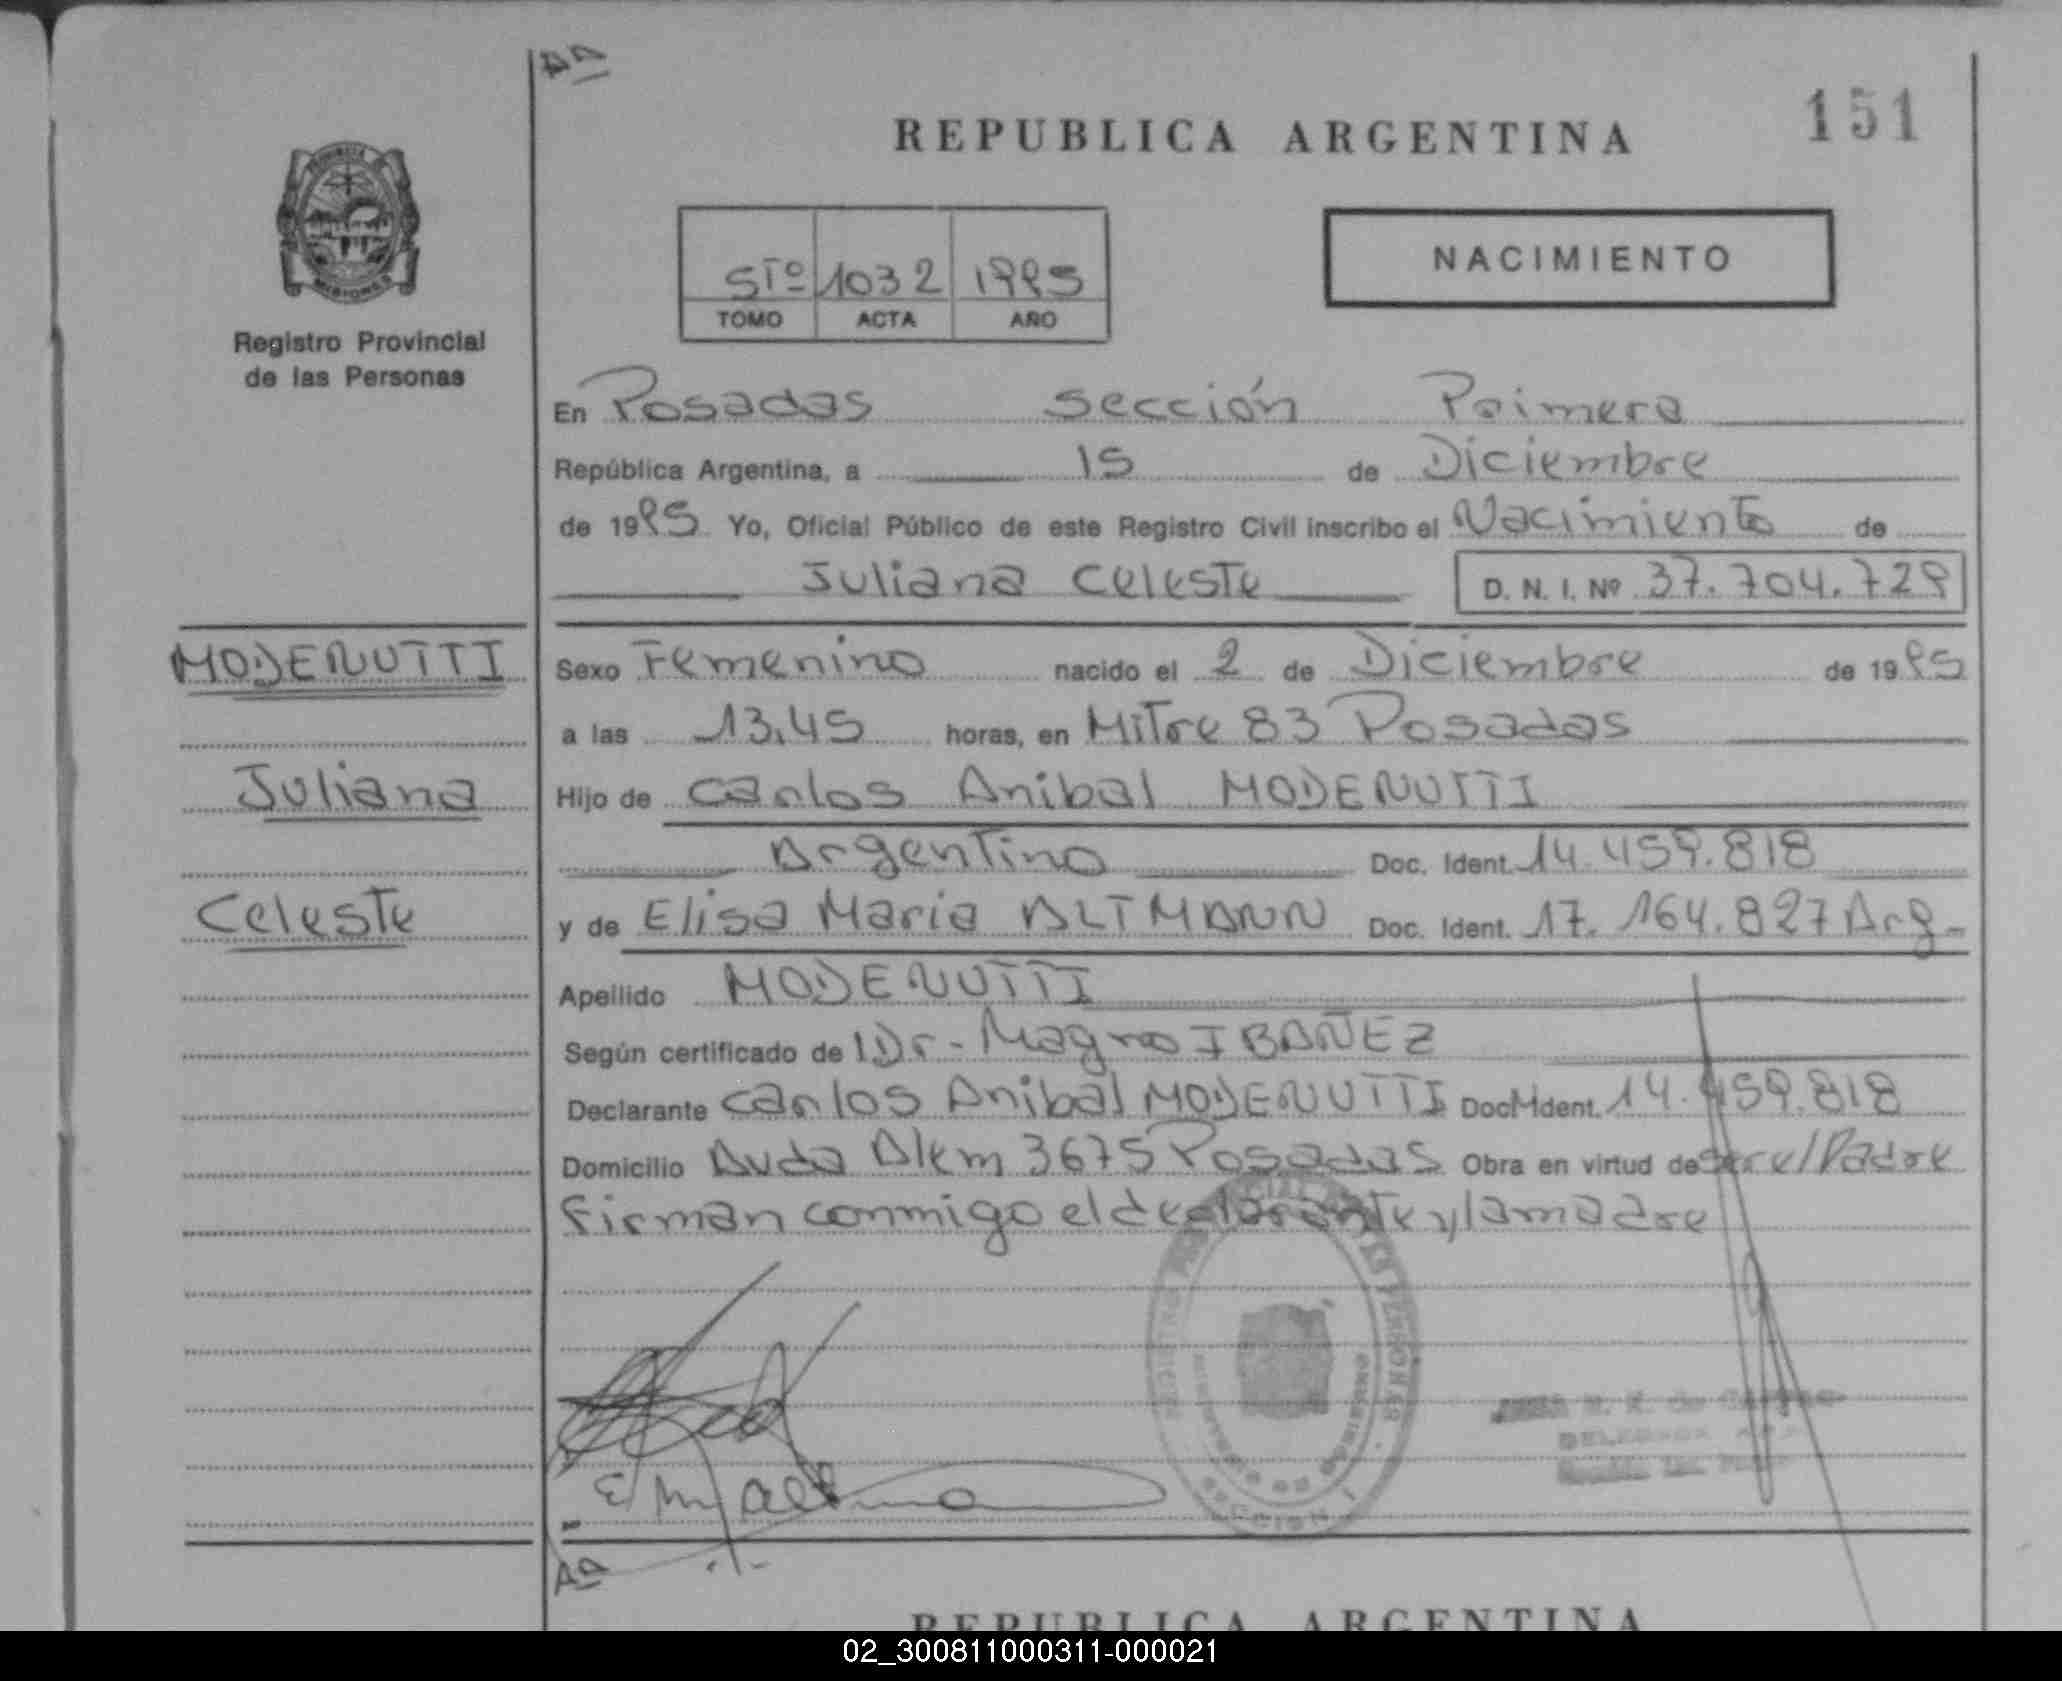 REPUBLICA ARGENTINA
151
MISIONES
Registro Provincial
de las Personas
5to 1032 1995
TOMO ACTA AÑO
NACIMIENTO
En Posadas sección Primera
República Argentina, a 15 de Diciembre
de 1995 Yo, Oficial Público de este Registro Civil inscribo el Nacimiento de
Juliana Celeste D. N. I. Nº 37.704.729
MODENUTTI
Juliana
Celeste
Sexo Femenino nacido el 2 de Diciembre de 1995
a las 13,45 horas, en Mitre 83 Posadas
Hijo de Carlos Anibal MODENUTTI
Argentino Doc. Ident. 14.459.818
y de Elisa Maria ALTMANN Doc. Ident. 17.164.827 Arg-
Apellido MODENUTTI
Según certificado de Dr- Magno IBAÑEZ
Declarante Carlos Anibal MODENUTTI Doc. Ident. 14.459.818
Domicilio Avda Alem 3675 Posadas Obra en virtud de ser el Padre
Firman conmigo el declarante y la madre
SECCION 1
REPUBLICA ARGENTINA
02_300811000311-000021